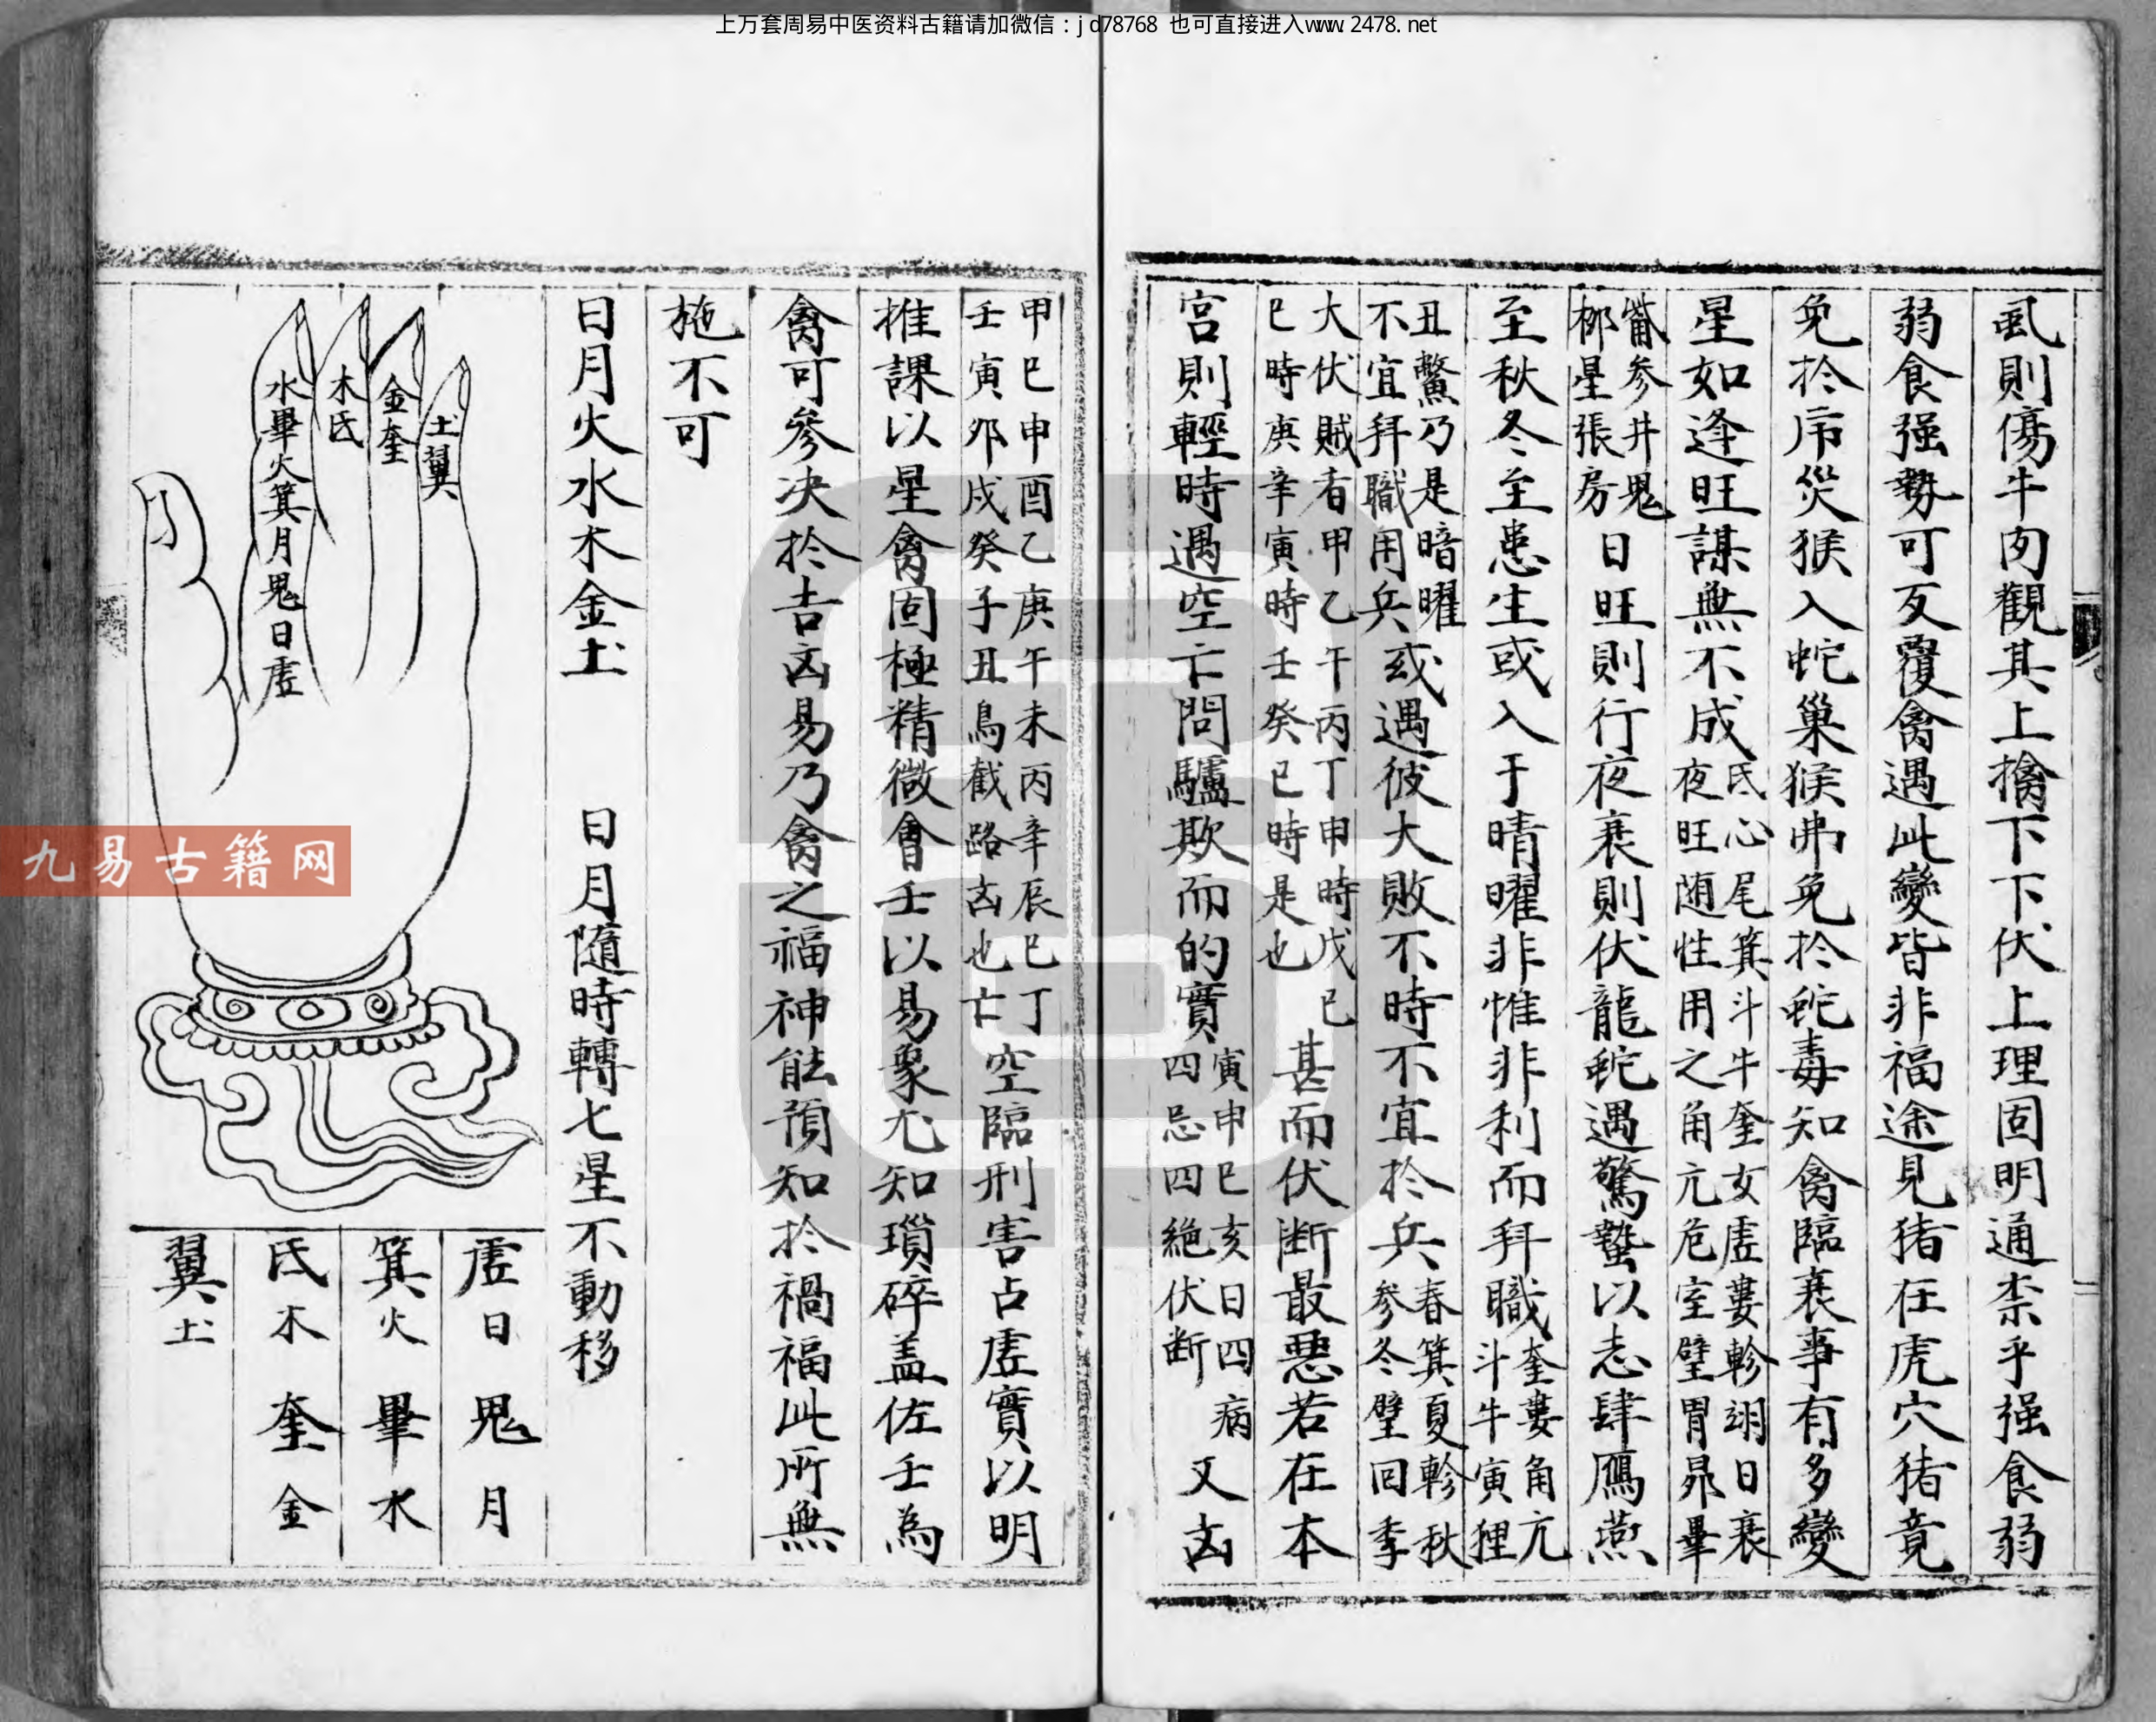 上万套周易中医资料古籍请加微信：jd78768 也可直接进入www.2478.net
虱則傷牛肉觀其上擒下下伏上理固明通柰乎强食弱
弱食强勢可反覆禽遇此變皆非福途見猪在虎穴猪竟
免於屠災猴入蛇巢猴弗免於蛇毒知禽臨衰事有多變
星如逢旺謀無不成
氐心尾箕斗牛奎女虛婁軫翊日衰
夜旺随性用之角亢危室壁胃昴畢
觜参井鬼
柳星張房
日旺則行夜衰則伏龍蛇遇驚蟄以志肆鴈燕
至秋冬至患生或入于晴曜非惟非利而拜職
奎婁角亢
斗牛寅狸
丑鱉乃是暗曜
不宜拜職用兵
或遇彼大敗不時不宜於兵
春箕夏軫秋
参冬壁回季
大伏賊者甲乙午丙丁申時戊己
巳時庚辛寅時壬癸巳時是也
甚而伏断最惡若在本
宮則輕時遇空亡問驢欺而的實
寅申巳亥日四病
四忌四絶伏断
又凶
甲己申酉乙庚午未丙辛辰巳丁
壬寅卯戌癸子丑鳥截路凶也亡
空臨刑害占虛實以明
推課以星禽固極精微會壬以易象尤知瑣碎盖佐壬為
禽可參决於吉凶易乃禽之福神能預知於禍福此所無
施不可
日月火水木金土 日月隨時轉七星不動移
土翼
金奎
木氐
水畢火箕月鬼日虛
虛日 鬼月
箕火 畢水
氐木 奎金
翼土
九易古籍网